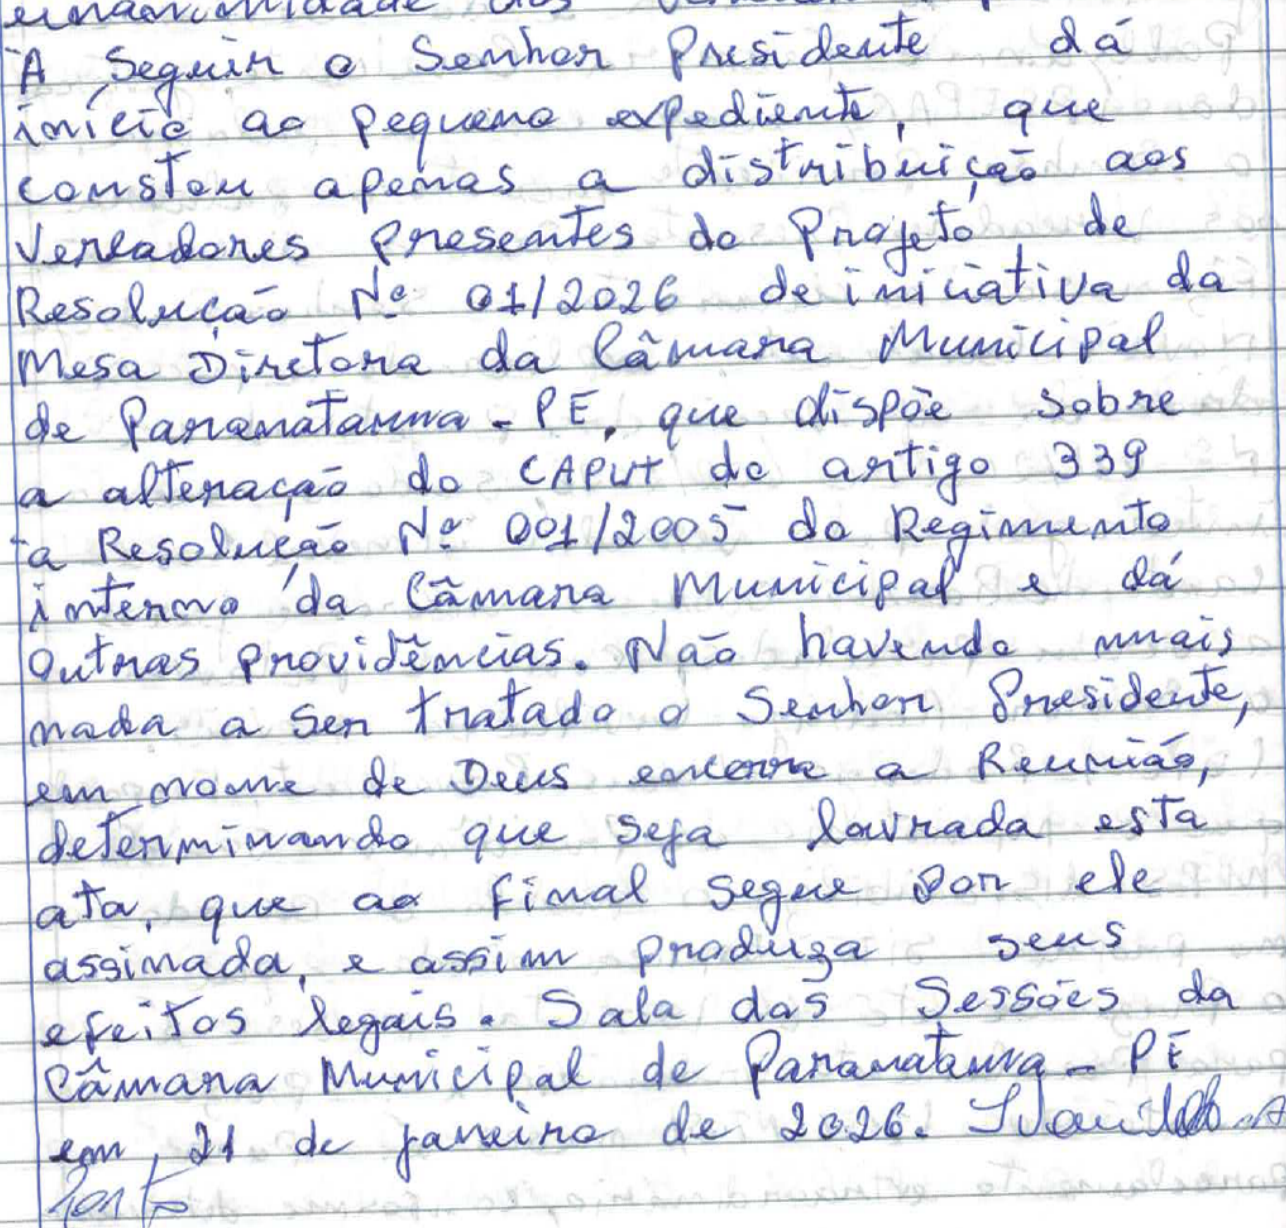 unanimidade dos
A Seguir o Senhor Presidente dá
início ao pequeno expediente, que
constou apenas a distribuição aos
Vereadores presentes do Projeto de
Resolução Nº 01/2026 de iniciativa da
Mesa Diretora da Câmara Municipal
de Paranatama - PE, que dispõe sobre
a alteração do CAPUT do artigo 339
a Resolução Nº 001/2005 do Regimento
interno da Câmara Municipal e dá
Outras providências. Não havendo mais
nada a ser tratado o Senhor Presidente,
em nome de Deus encerra a Reunião,
determinando que seja lavrada esta
ata, que ao final segue por ele
assinada, e assim produza seus
efeitos legais. Sala das Sessões da
Câmara Municipal de Paranatama - PE
em, 21 de janeiro de 2026.